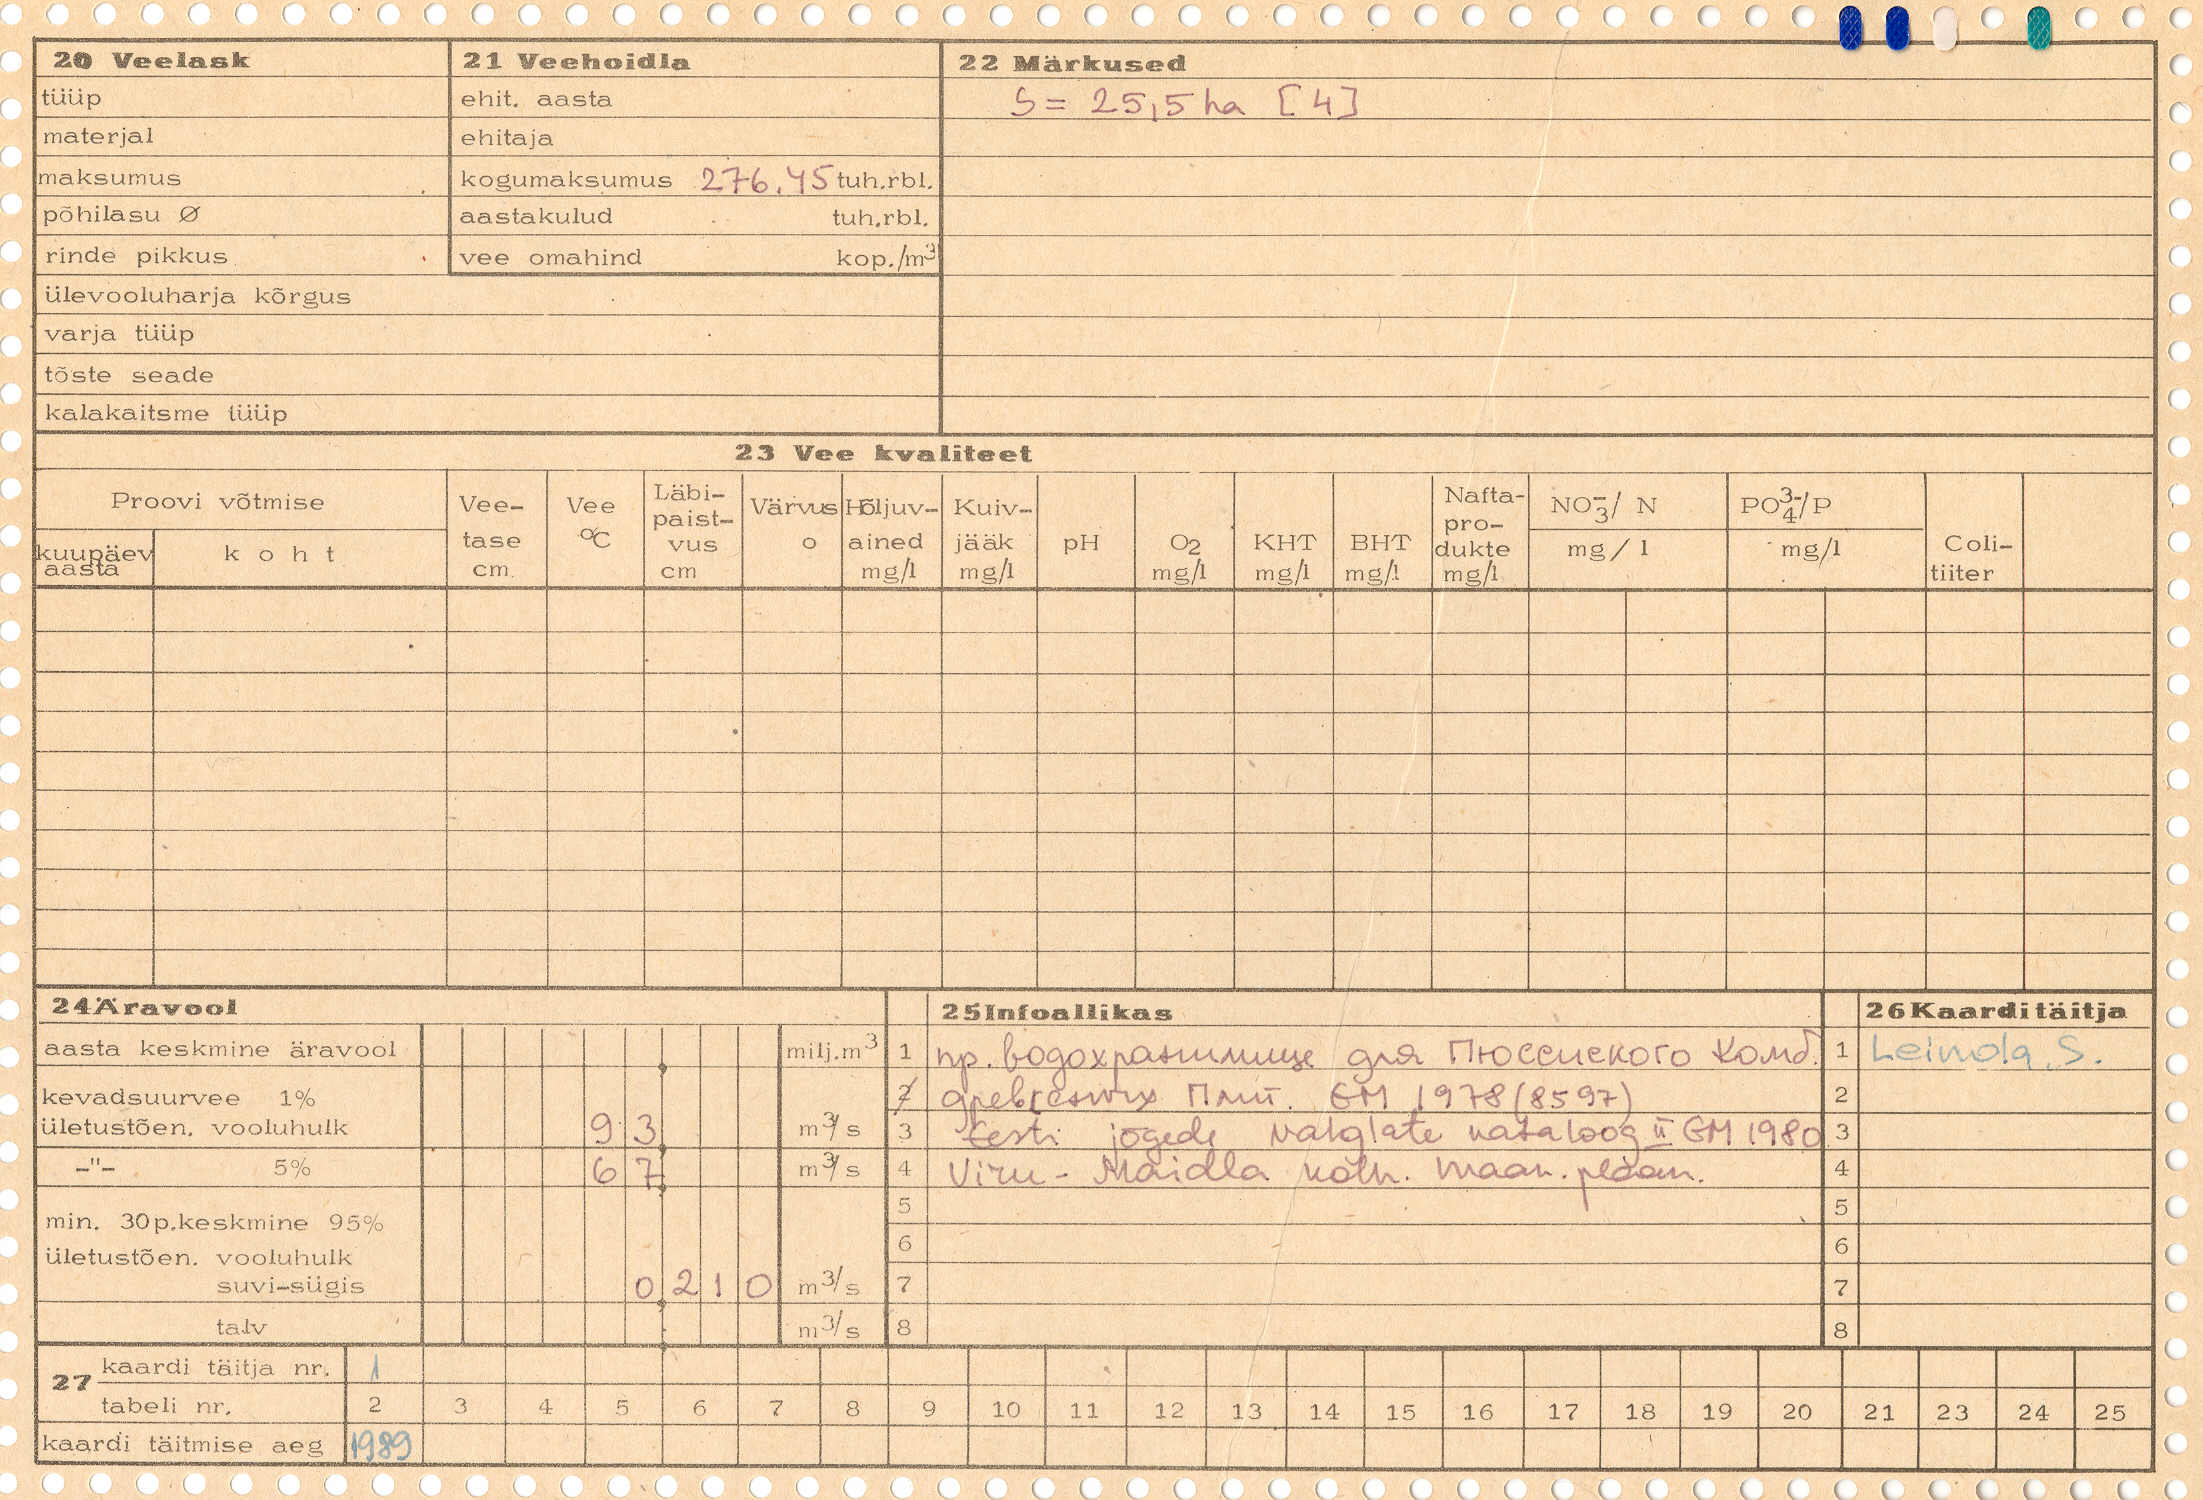 20 Veelask
tüüp
materjal
maksumus
põhilasu Ø
rinde pikkus
ülevooluharja kõrgus
varja tüüp
tõste seade
kalakaitsme tüüp
21 Veehoidla
ehit. aasta
ehitaja
kogumaksumus 276.45 tuh.rbl.
aastakulud tuh.rbl.
vee omahind kop./m³
22 Märkused
S = 25,5 ha [4]
23 Vee kvaliteet
Proovi võtmise
kuupäev aasta
koht
Vee-tase cm
Vee °C
Läbi-paist-vus cm
Värvus o
Hõljuv-ained mg/l
Kuiv-jääk mg/l
pH
O2 mg/l
KHT mg/l
BHT mg/l
Nafta-pro-dukte mg/l
NO₃⁻/ N mg/l
PO₄³⁻/P mg/l
Coli-tiiter
24 Äravool
aasta keskmine äravool milj.m³
kevadsuurvee 1%
ületustõen. vooluhulk 93 m³/s
-"- 5% 67 m³/s
min. 30p.keskmine 95%
ületustõen. vooluhulk
suvi-sügis 0 210 m³/s
talv m³/s
25 Infoallikas
1 пр. водохранилище для Пюссиского Комб.
2 древесных Плит. EM 1978 (8597)
3 Eesti jõgede valglate kataloog II EM 1980
4 Viru - Maidla kolh. maan. plaan.
5
6
7
8
26 Kaarditäitja
1 Leimola, S.
2
3
4
5
6
7
8
27 kaardi täitja nr. 1
tabeli nr. 2 3 4 5 6 7 8 9 10 11 12 13 14 15 16 17 18 19 20 21 23 24 25
kaardi täitmise aeg 1989